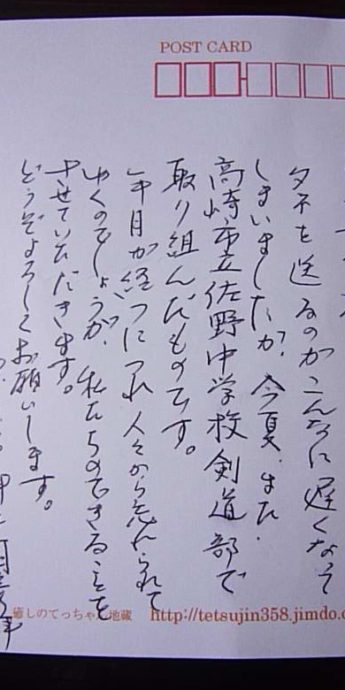 POST CARD
タネを送るのがこんなに遅くなって
しまいましたが、今夏、また、
高崎市立佐野中学校剣道部で
取り組んだものです。
年月が経つにつれ人々から忘れられて
ゆくのでしょうが、私たちのできることを
させていただきます。
どうぞよろしくお願いします。
癒しのてっちゃん地蔵 http://tetsujin358.jimdo.c